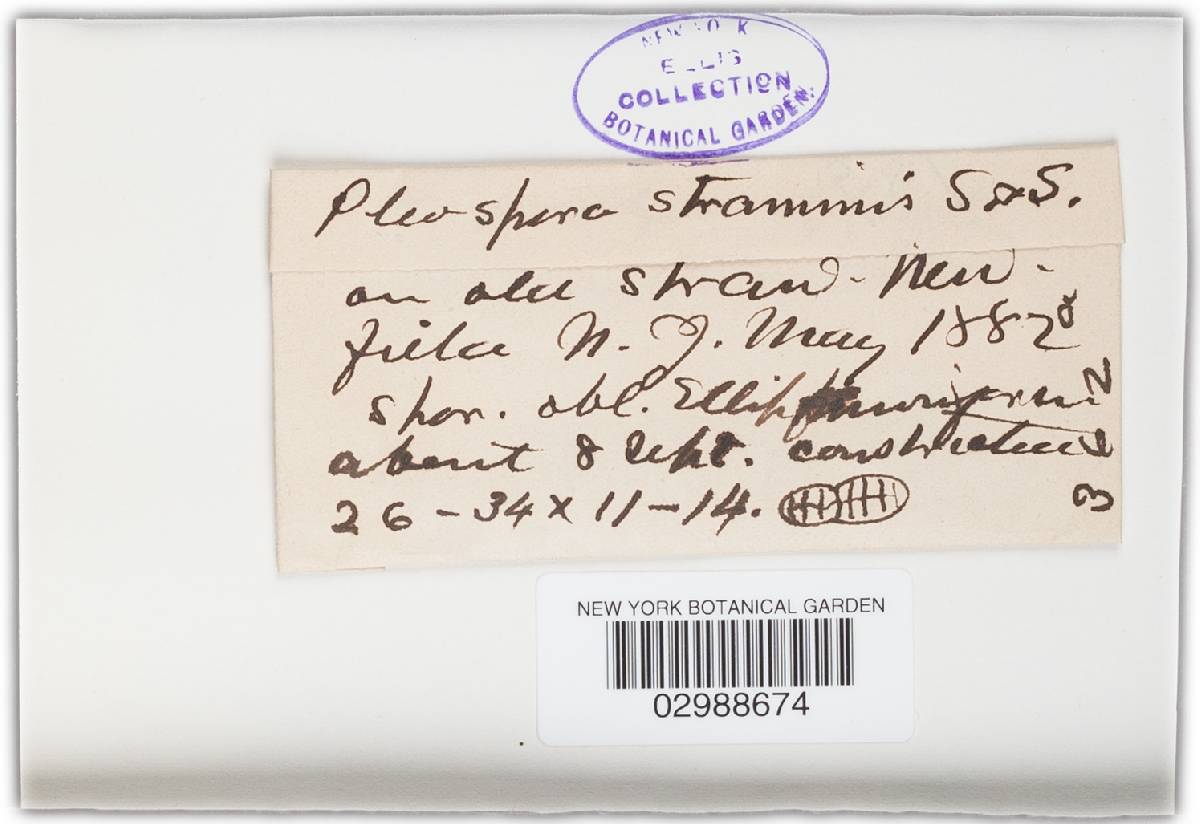 NEW YO K
ELLIS
COLLECTION
BOTANICAL GARDEN.
Pleospora straminis S&S.
on old straw - New-
field N. J. May 1882
spor. obl. Ellip muriform
about 8 sept. constricted
26-34 x 11-14.
& 2 & 3
NEW YORK BOTANICAL GARDEN
02988674